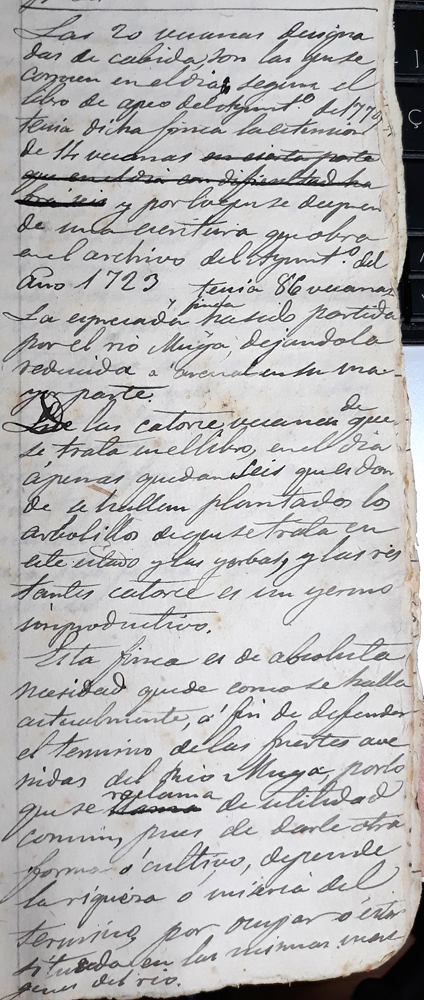 Las 20 vecanas designa
das de cabida, son las que se
conocen en el dia, segun el
libro de apeo del Ayunt.º de 1770,
tenia dicha finca la estension
de 14 vecanas en cierta parte
que en el dia con dificultad ha
brá seis y por lo que se despren
de una escritura que obra
en el archivo del Ayunt.º del
año 1723 tenia 86 vecanas
La espresada finca ha sido partida
por el rio Muga, dejandola
reducida a arenal en su ma-
yor parte.
De las catorce vecanas de que
se trata en el libro, en el dia
ápenas quedan seis que es don
de se hallan plantados los
arbolillos de que se trata en
este estado y las yerbas, y las res
tantes catorce es un yermo
improductivo.
Esta finca es de absoluta
nesidad quede como se halla
actualmente, á fin de defender
el termino de las fuertes ave
nidas del Rio Muga, por lo
que se reclama llama de utilidad
comun, pues de darle otra
forma o cultivo, depende
la riqueza ó miseria del
termino, por ocupar ó estar
situada en las mismas mar
genes del rio.